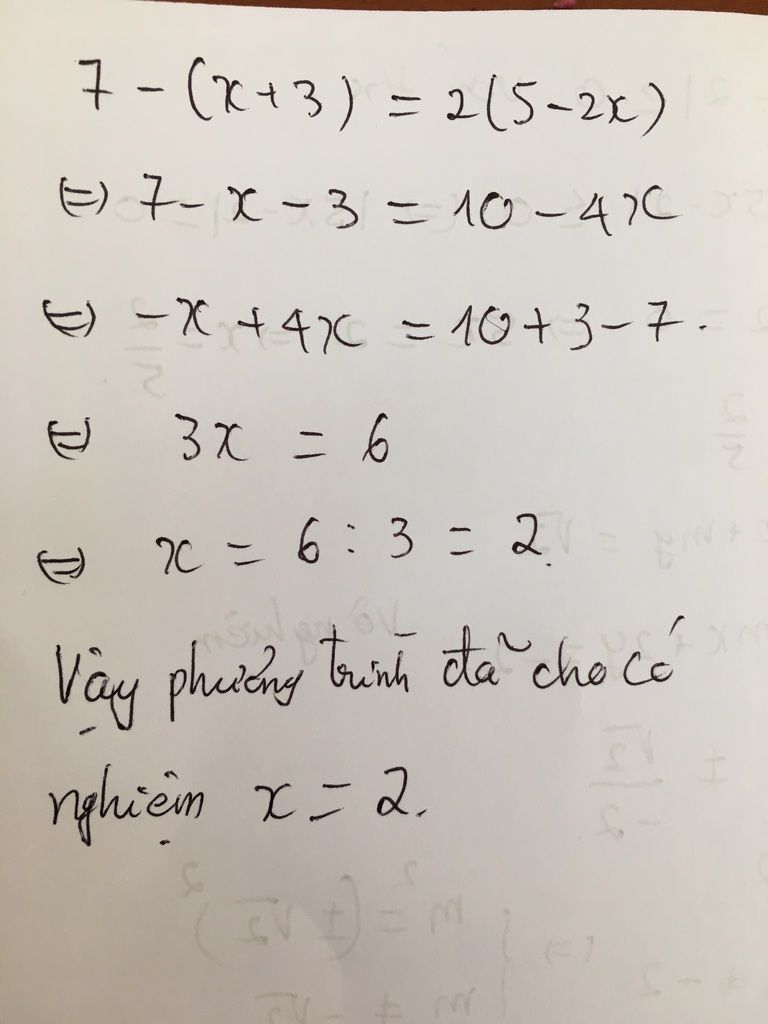 7 - (x + 3) = 2(5 - 2x)
⇔ 7 - x - 3 = 10 - 4x
⇔ -x + 4x = 10 + 3 - 7.
⇔ 3x = 6
⇔ x = 6 : 3 = 2.
Vậy phương trình đã cho có
nghiệm x = 2.